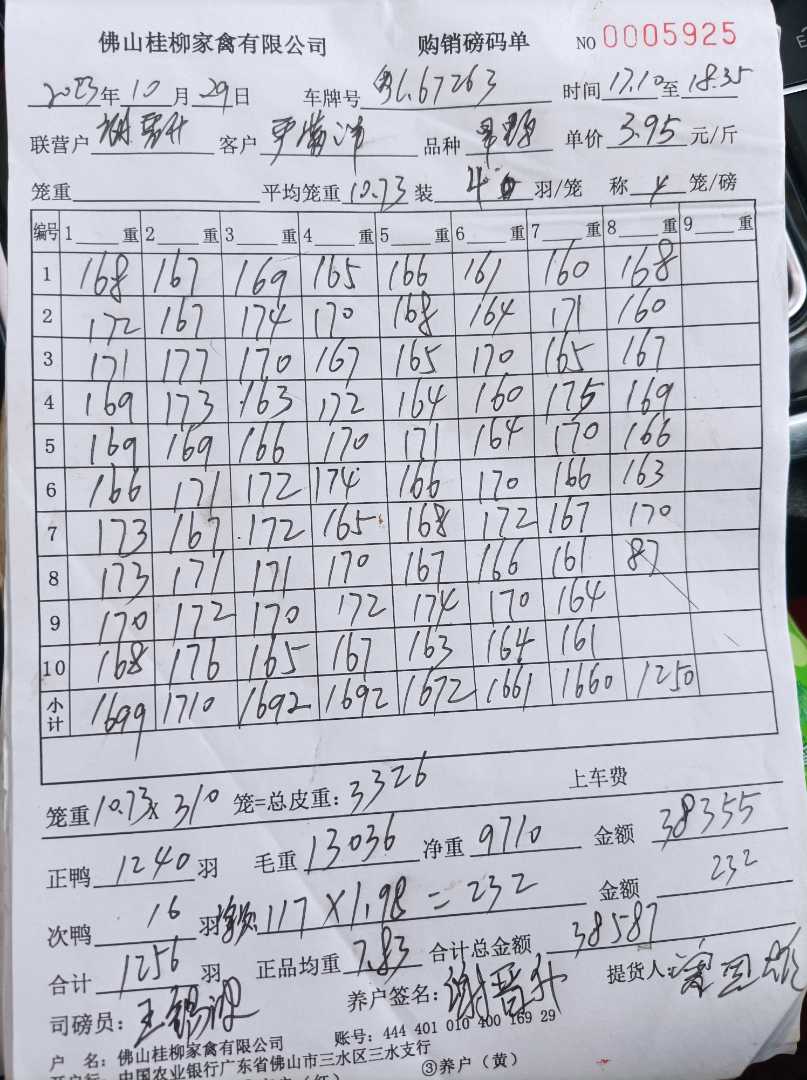 佛山桂柳家禽有限公司 购销磅码单 NO 0005925
2023年10月29日 车牌号 粤L67263 时间 17.10至18.35
联营户 谢晋升 客户 品种 单价 3.95 元/斤
笼重 平均笼重 10.73 装 4 羽/笼 称 4 笼/磅
编号 1 重 2 重 3 重 4 重 5 重 6 重 7 重 8 重 9 重
1 168 167 169 165 166 161 160 168
2 172 167 174 170 168 164 171 160
3 171 177 170 167 165 170 165 167
4 169 173 163 172 164 160 175 169
5 169 169 166 170 171 164 170 166
6 166 171 172 174 166 170 166 163
7 173 167 172 165 168 172 167 170
8 173 171 171 170 167 166 161 87
9 170 172 170 172 174 170 164
10 168 176 165 167 163 164 161
小计 1699 1710 1692 1692 1672 1661 1660 1250
笼重 10.73 x 310 笼=总皮重: 3326 上车费
正鸭 1240 羽 毛重 13036 净重 9710 金额 38355
次鸭 16 羽 117 X 1.98 = 232 金额 232
合计 1256 羽 正品均重 7.83 合计总金额 38587
司磅员: 王锡波 养户签名: 谢晋升 提货人:
户 名: 佛山桂柳家禽有限公司 账号: 444 401 010 400 169 29
开户行: 中国农业银行广东省佛山市三水区三水支行
③养户（黄）